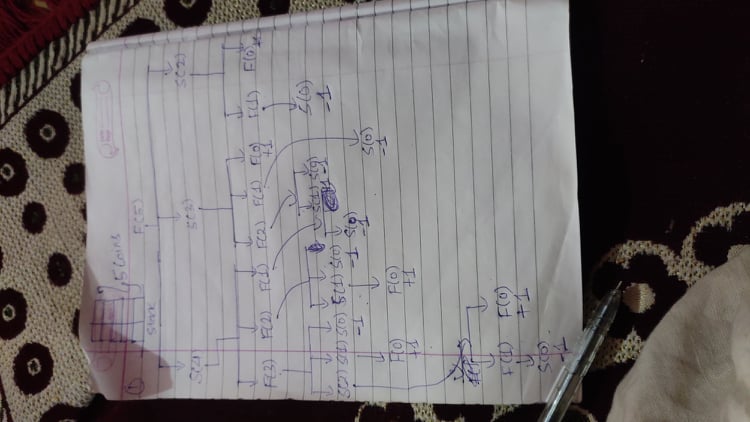 ① 5 coins
stack F(5)
S(4) S(3) S(2)
F(3) F(2) F(1) F(2) F(1) F(0) F(1) F(0)
+1
S(1) S(0) S(0)
-1 -1
S(2) S(1) S(0) S(1) S(0) S(0)
-1 -1 -1
F(0) F(0) S(0)
+1 +1 -1
F(1) F(0)
+1
S(0)
-1